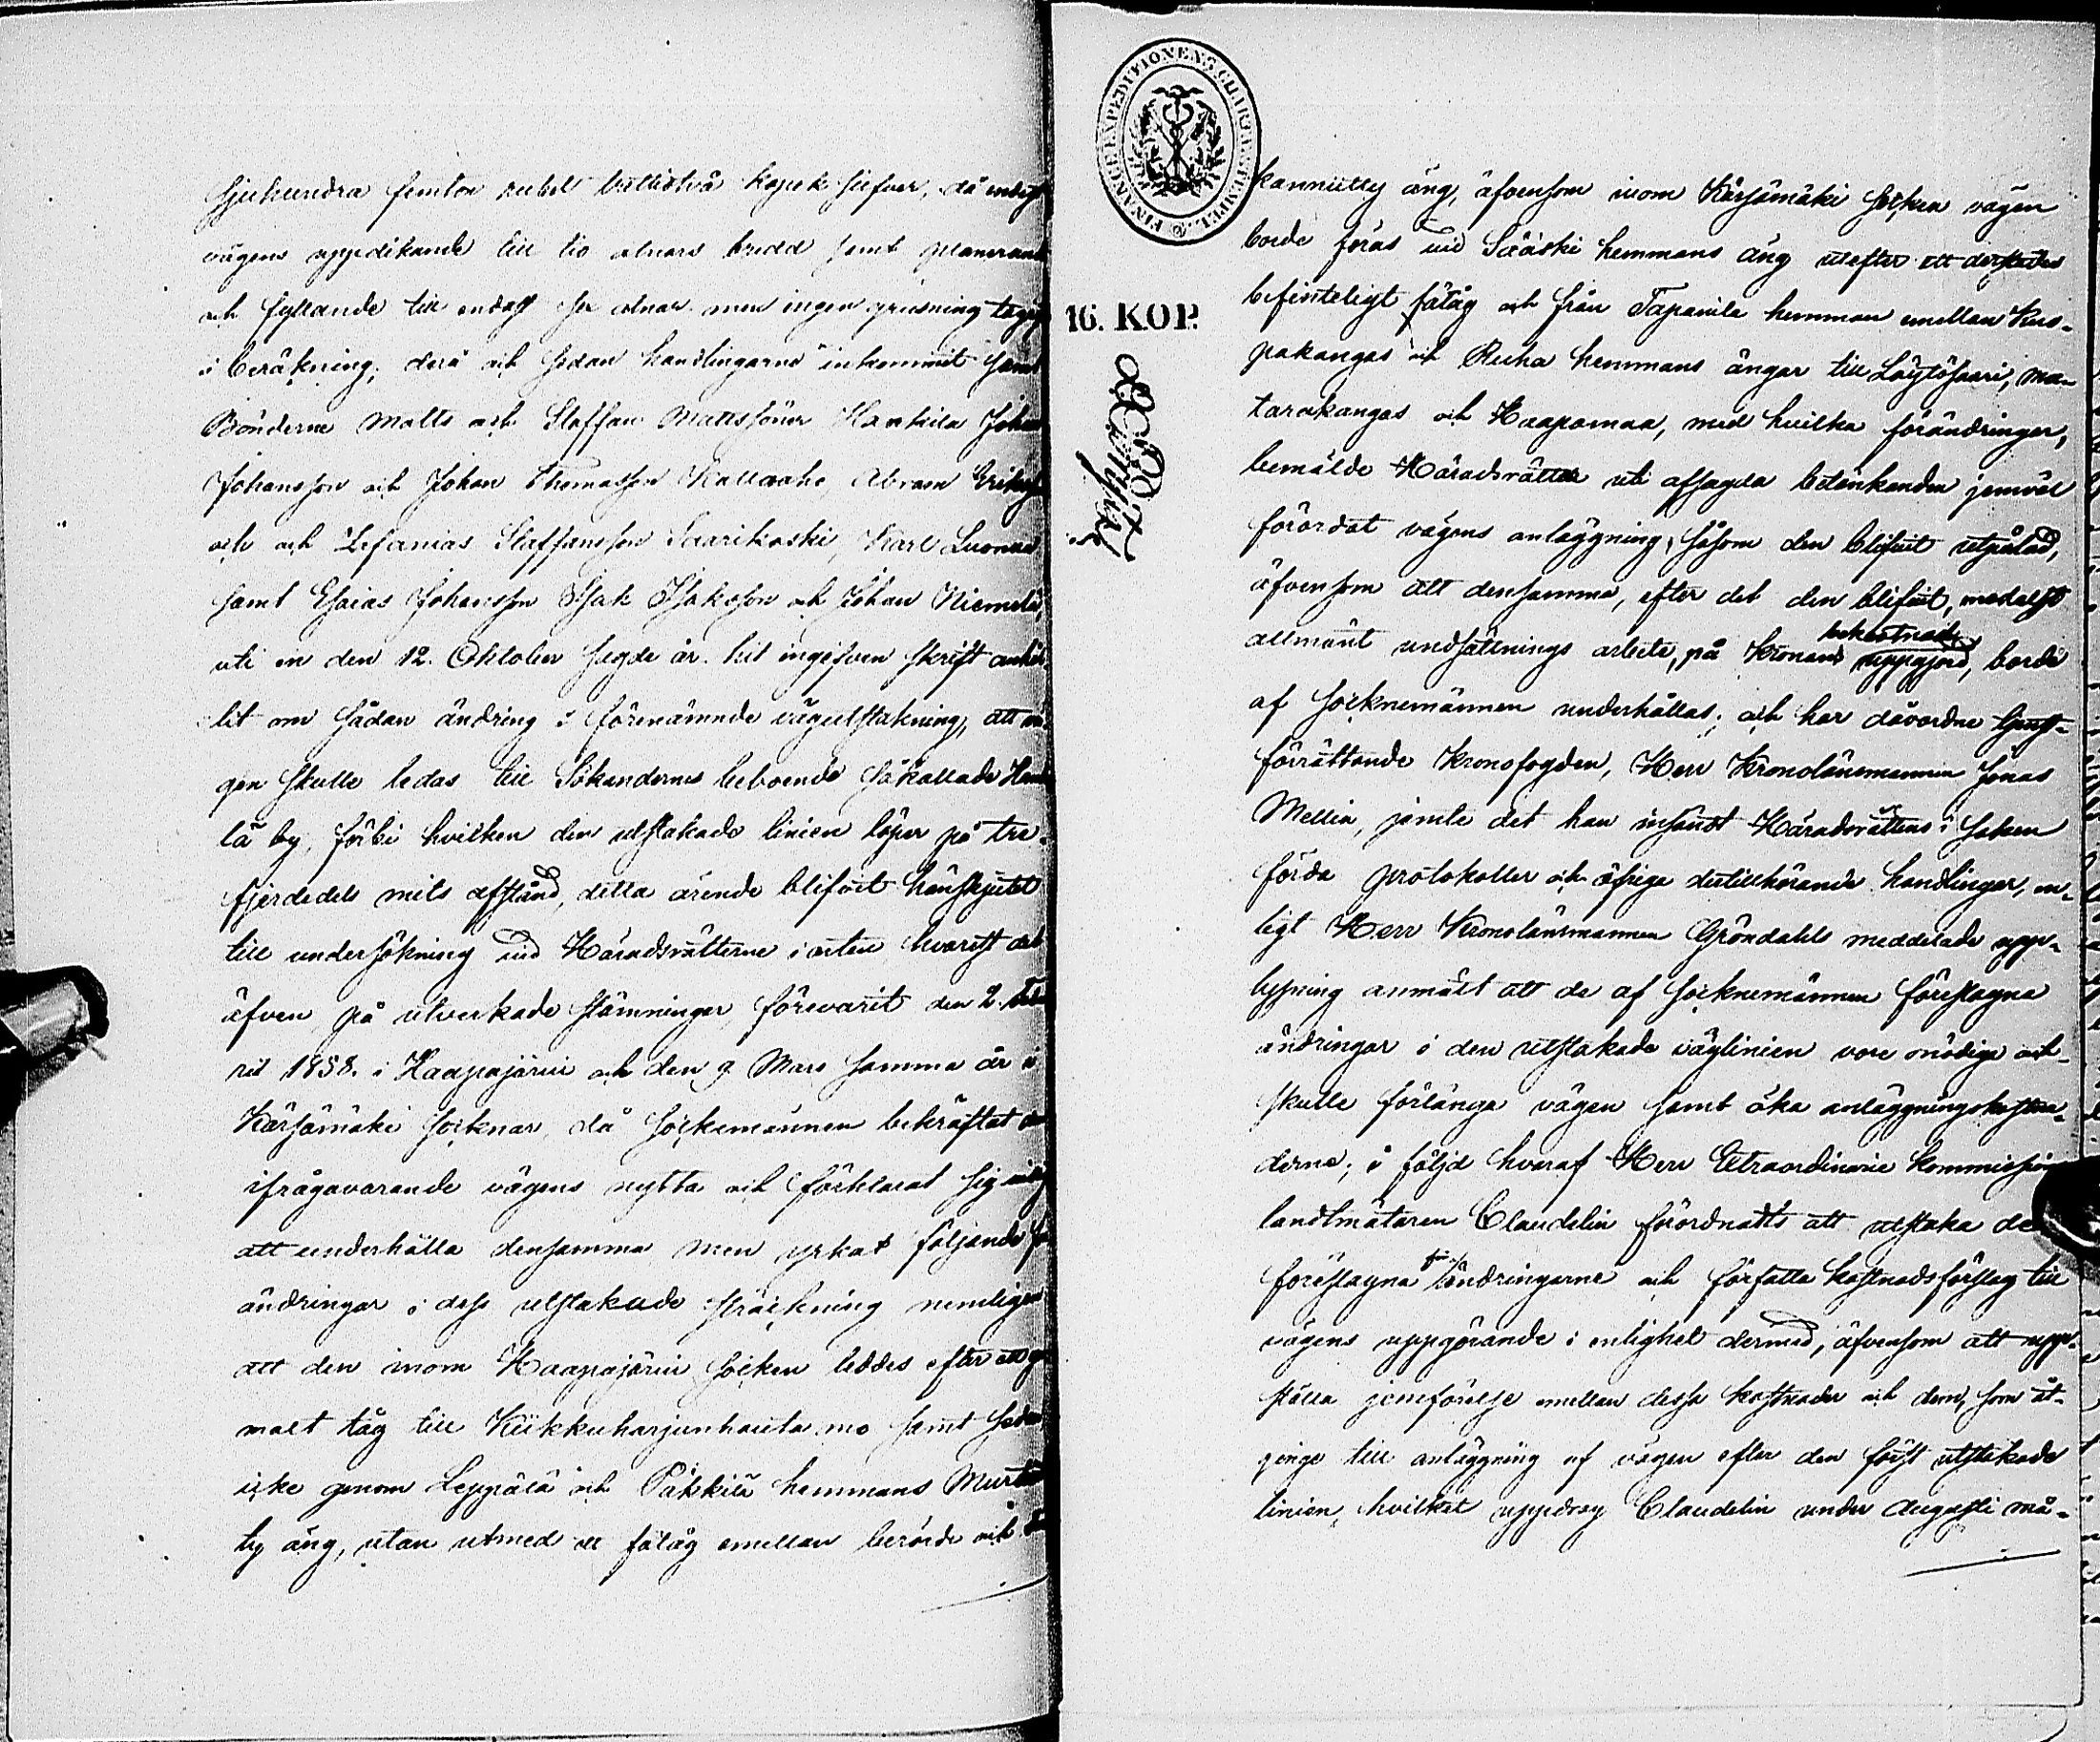 sjuhundra femton rubel trettiotvå kopek silfver, då endast
vägens uppdikande till tio alnars bredd samt planerande
och fyllande till endast sex alnar men ingen grusning tagits
i beräkning; derå och sedan handlingarne inkommit samt
Bönderne Matts och Staffan Mattssöner Hankila Johan
Johansson och Johan Thomasson Kallioaho Abram Eriks
och Zefanias Staffansson Saarikoski, Karl Luoma,
samt Esaias Johansson Isak Isaksson och Johan Niemelä,
uti en den 12. Oktober sagde år hit ingifven skrift anhål-
lit om sådan ändring i förenämnde vägutstakning, att vä-
gen skulle ledas till Sökandernes beboende såkallade
lä by, förbi hvilken den utstakade linien löper på tre
fjerdedels mils afstånd, detta ärende blifvit hänskjutet
till undersökning vid Häradsrätterne i orten hvarest det
äfven på utverkade stämningar, förevarit den 2.
rii 1858. i Haapajärvi och den 9 Mars samma år i
Kärsämäki Socknar, då Sockenmännen bekräftat den
ifrågavarande vägens nytta och förklarat sig
att underhålla densamma men yrkat följande för
ändringar i dess utstakade sträckning nemligen
att den inom Haapajärvi Socken leddes efter ett
malt tåg till Kiikkuharjunhauta mo samt sedan
icke genom Leppälä och Pákkilä hemmans
ty äng, utan utmed ett fätåg emellan berörde och
FINANCE EXPEDITIONENS CHARTÆ STEMPEL
16. KOP.
kannitty äng, äfvensom inom Kärsämäki Socken vägen
borde föras vid Sääski hemmans äng utefter ett derstädes
befinteligt fätåg och från Tapanila hemman emellan Kus-
pakangas och Ruha hemmans ängar till Löytösaari, Ma-
tarakangas och Haapamaa, med hvilka förändringar,
bemälde Häradsrätter uti afsagda betänkanden jemväl
förordat vägens anläggning, såsom den blifvit utpålad,
äfvensom att densamma, efter det den blifvit, medelst
allmänt undsättnings arbete, på Kronans bekostnad uppgjord, borde
af Socknemännen underhållas; och har dåvordne tjenst-
förrättande Kronofogden, Herr Kronolänsmannen Jonas
Mellin, jemte det han insändt Häradsrättens i saken
förda protokoller och öfriga dertillhörande handlingar, en-
ligt Herr Kronolänsmannen Gröndahls meddelade upp-
lysning anmält att de af Socknemännen föreslagna
ändringar i den utstakade väglinien vore onödiga och
skulle förlänga vägen samt öka anläggningskostna-
derne; i följd hvaraf Herr Extraordinarie Kommissions
landtmätaren Claudelin förordnats att utstaka de
föreslagna förändringarne och författa kostnadsförslag till
vägens uppgörande i enlighet dermed, äfvensom att upp-
ställa jemförelse emellan dessa kostnader och dem, som åt-
ginge till anläggning af vägen efter den först utstakade
linien, hvilket uppdrag Claudelin under Augusti må-